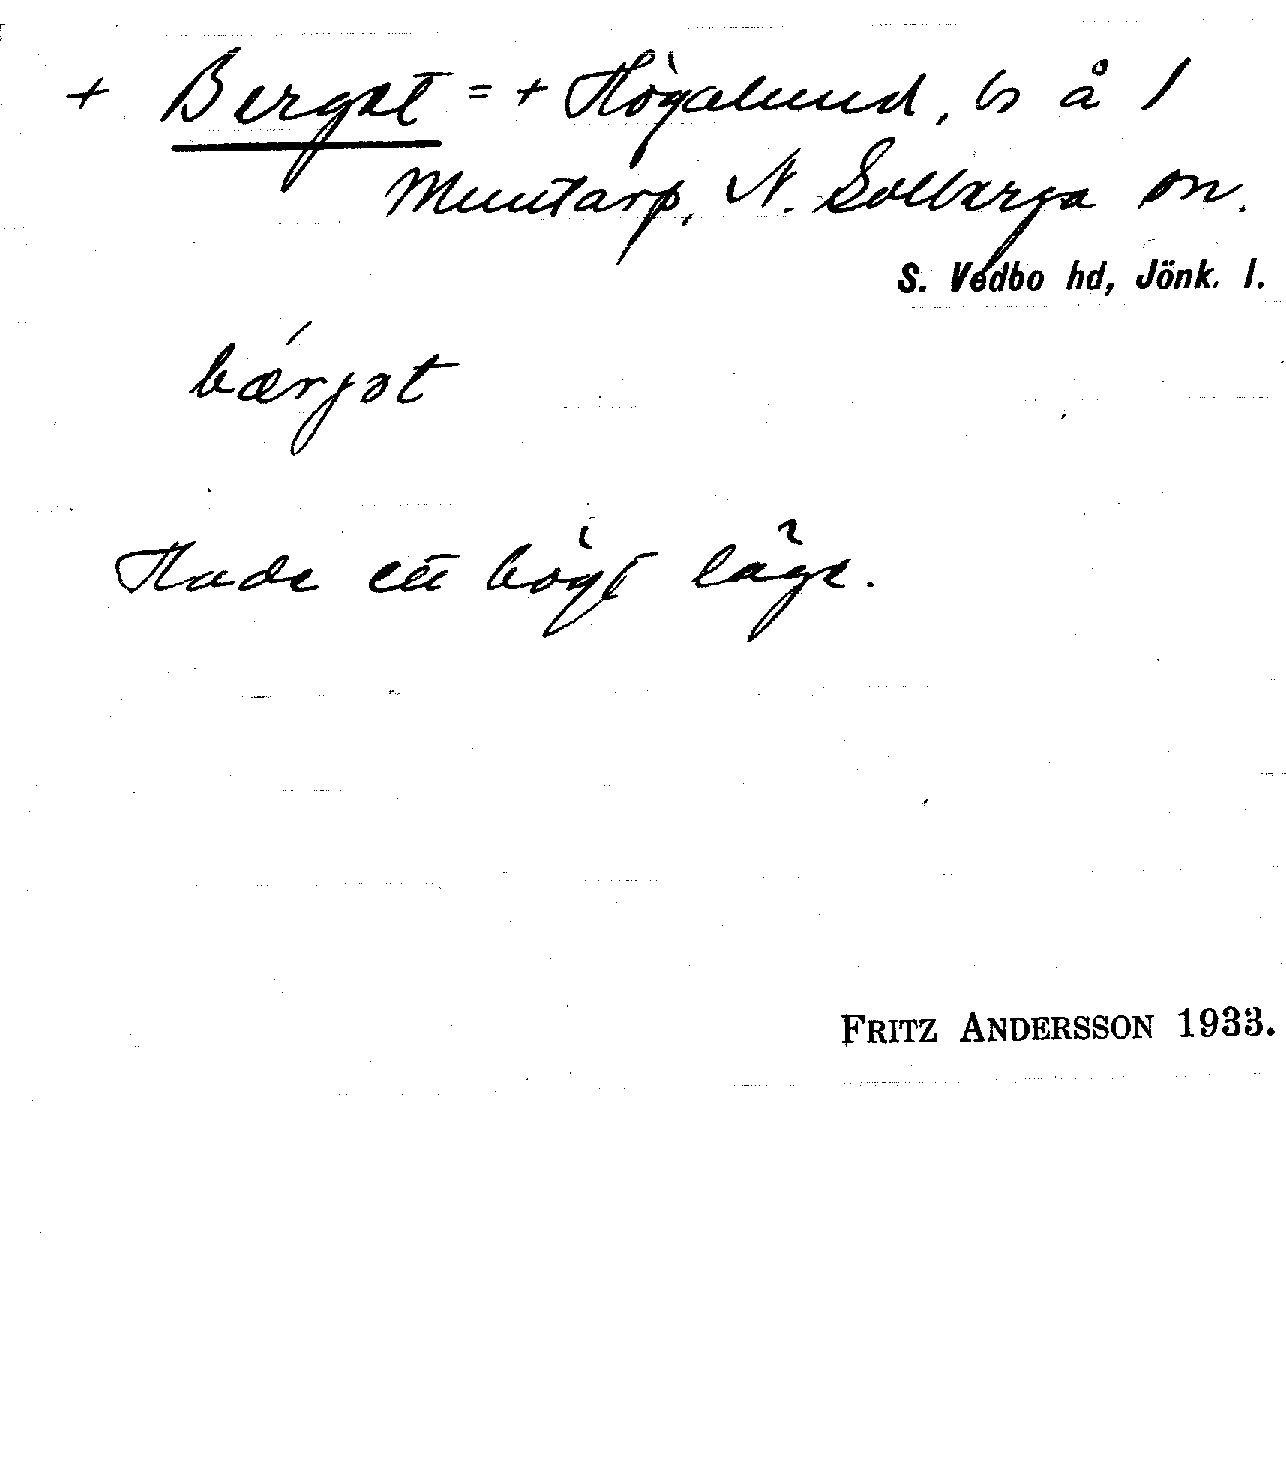 + Berget = + Högalund, ls å 1
Muntarp, N. Solberga sn.
S. Vedbo hd, Jönk. l.
bǽrjət
Hade ett högt läge.
FRITZ ANDERSSON 1933.